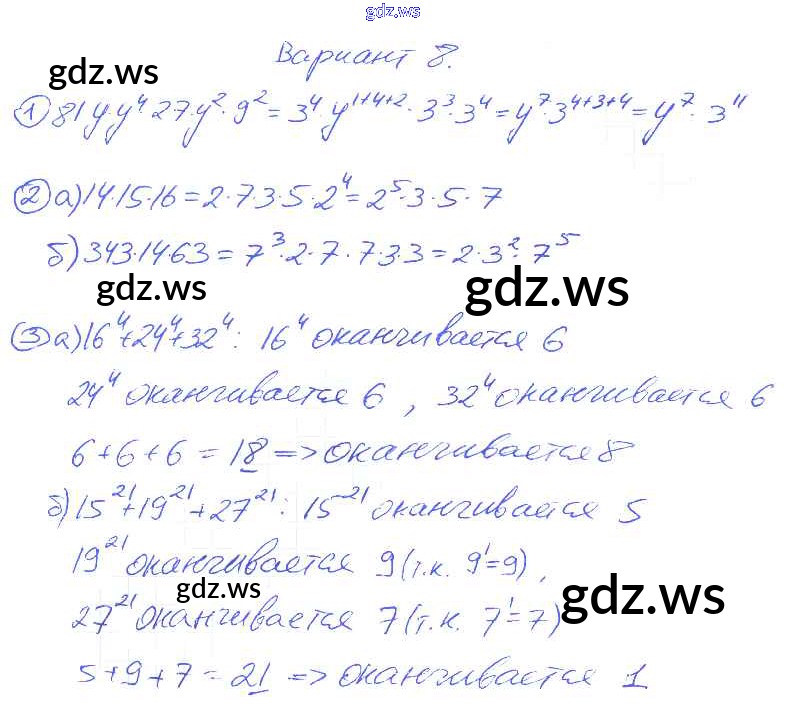 gdz.ws
Вариант 8.
gdz.ws
① 81y·y⁴·27·y²·9² = 3⁴·y¹⁺⁴⁺²·3³·3⁴ = y⁷·3⁴⁺³⁺⁴ = y⁷·3¹¹
② а) 14·15·16 = 2·7·3·5·2⁴ = 2⁵·3·5·7
б) 343·14·63 = 7³·2·7·7·3·3 = 2·3²·7⁵
gdz.ws gdz.ws
③ а) 16⁴+24⁴+32⁴: 16⁴ оканчивается 6
24⁴ оканчивается 6, 32⁴ оканчивается 6
6+6+6 = 18 => оканчивается 8
б) 15²¹+19²¹+27²¹: 15²¹ оканчивается 5
19²¹ оканчивается 9 (т.к. 9¹=9),
gdz.ws gdz.ws
27²¹ оканчивается 7 (т.к. 7¹=7)
5+9+7 = 21 => оканчивается 1